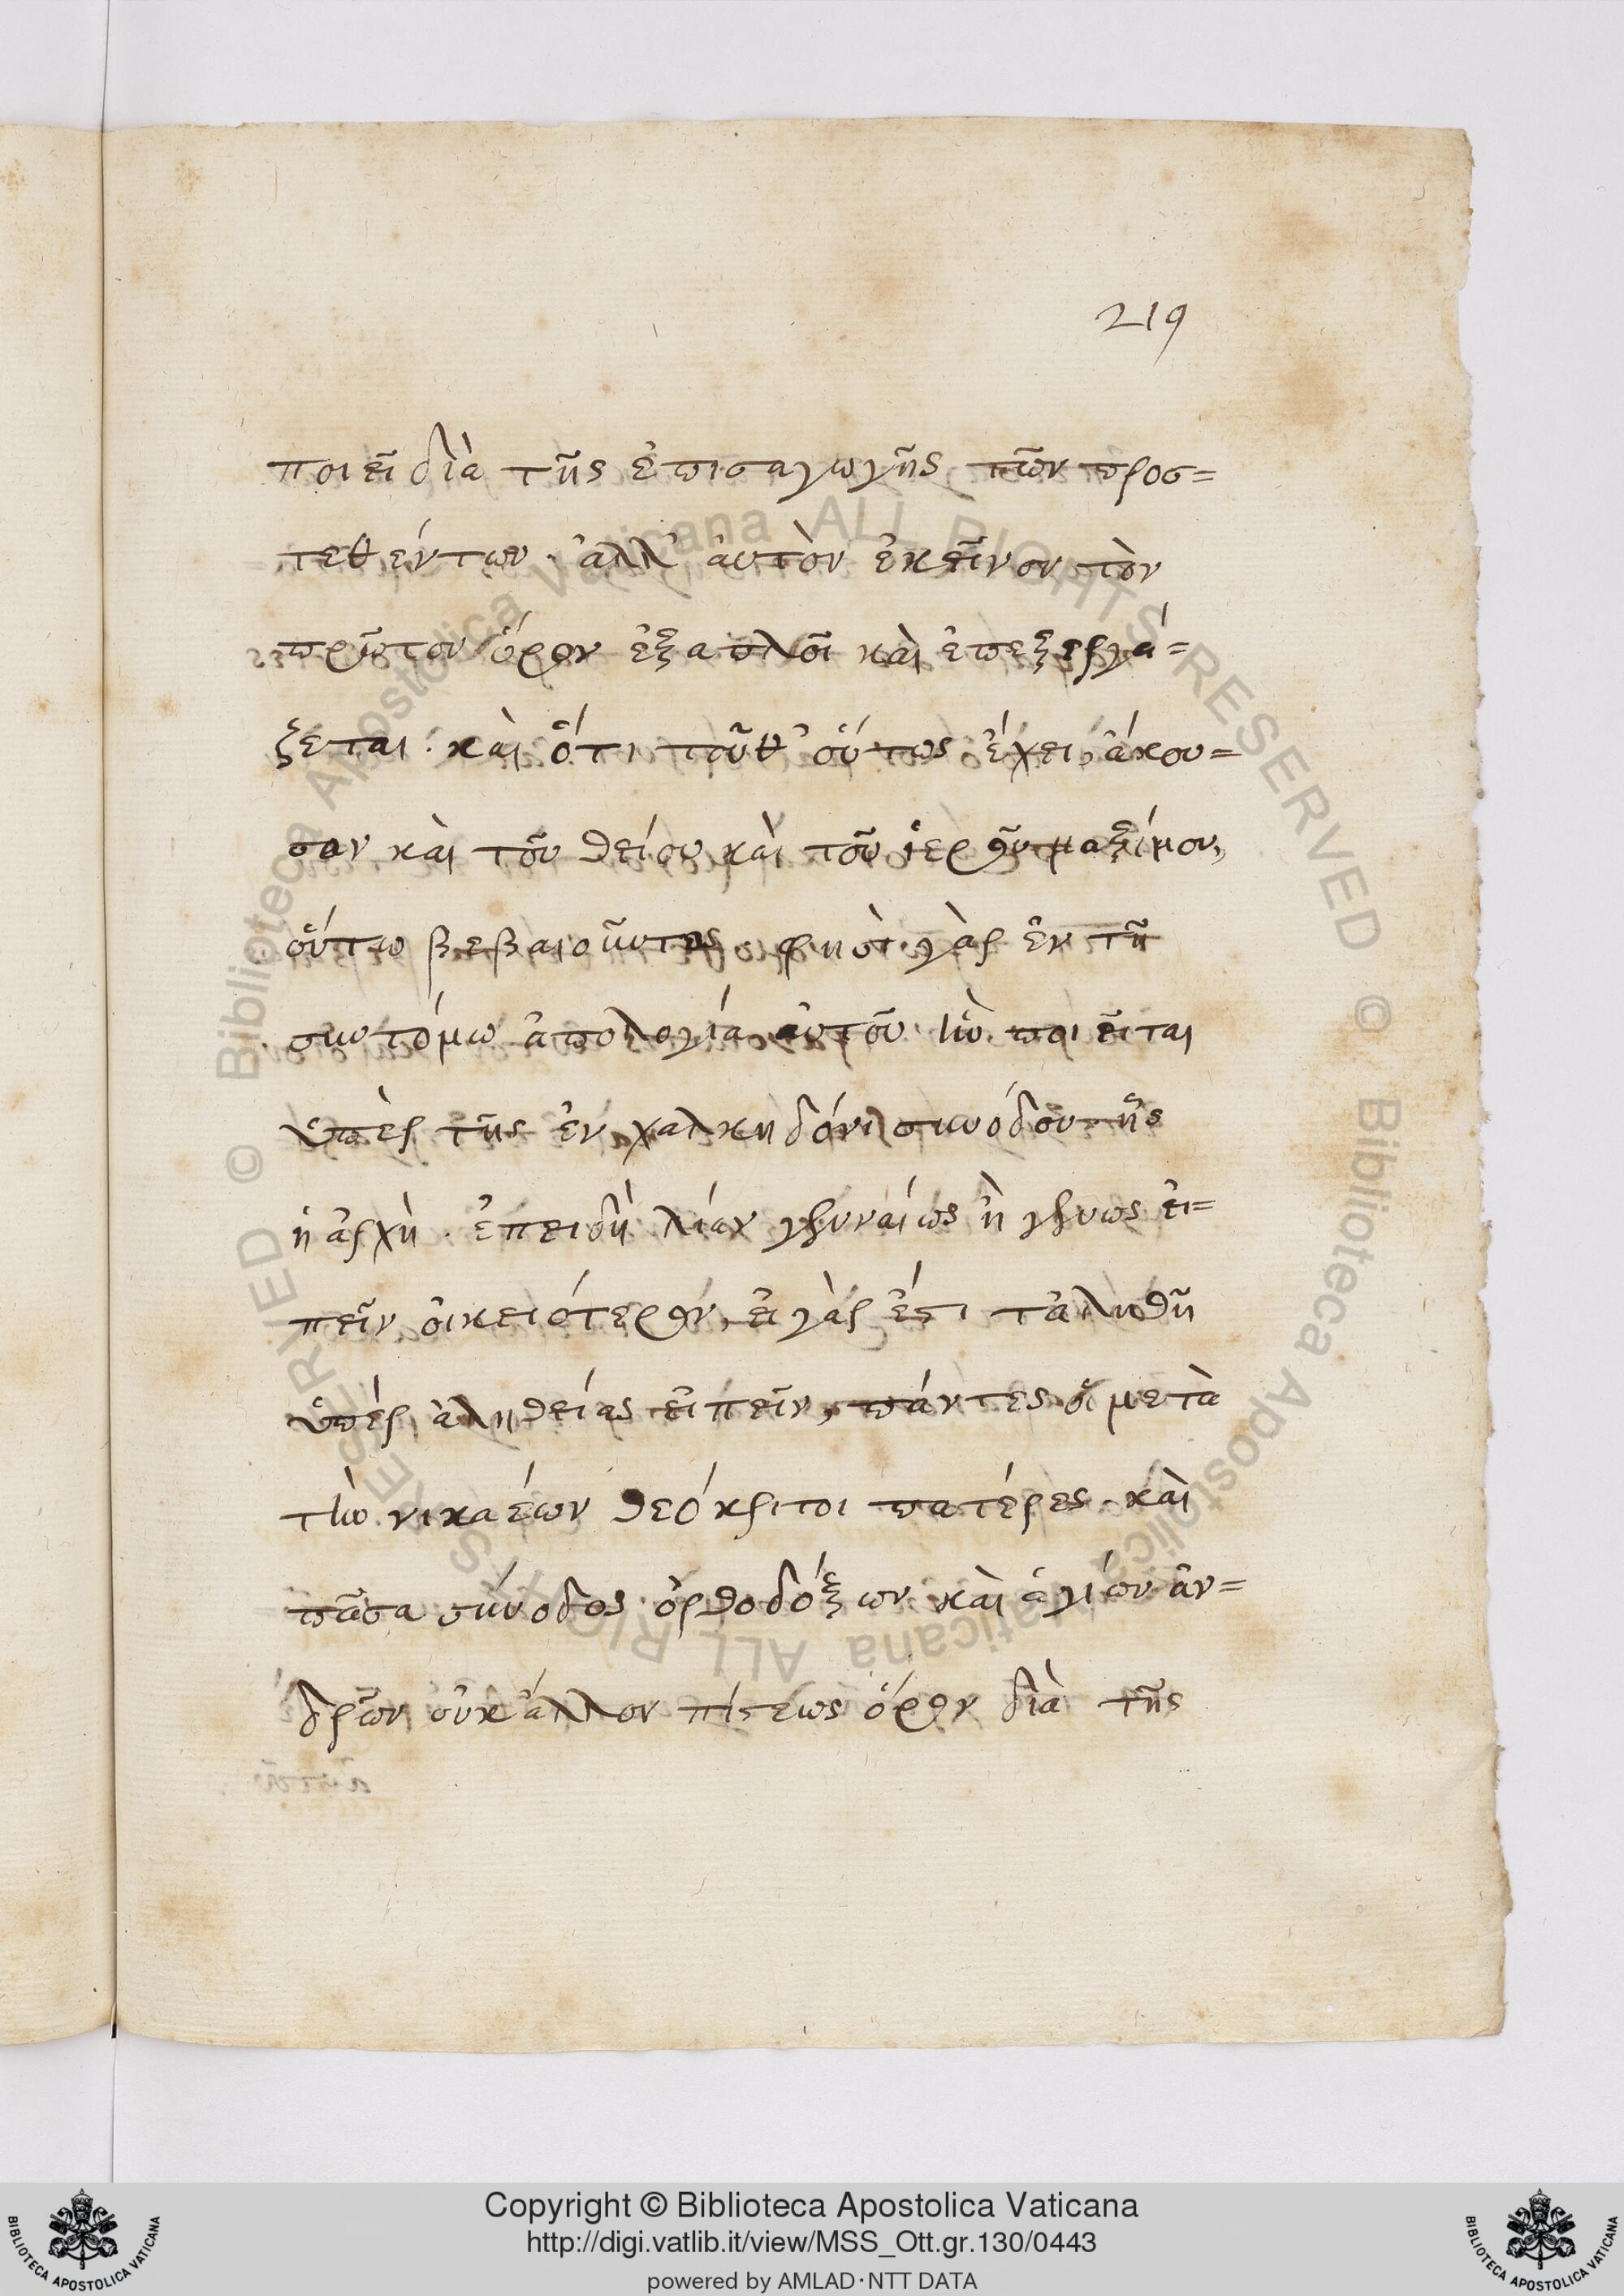 219
ποιεῖ διὰ τῆς ἐπισαγωγῆς τῶν προσ=
τεθέντων· ἀλλ' αὐτὸν ἐκεῖνον τὸν
πρῶτον ὅρον ἐξαπλοῖ καὶ ἐπεξεργά=
ζεται· καὶ ὅτι τοῦθ' οὕτως ἔχει, ἄκου=
σον καὶ τοῦ θείου καὶ τοῦ ἱεροῦ μαξίμου,
οὕτω βεβαιοῦντος· φησὶ γὰρ ἐν τῇ
συντόμω ἀπολογία αὐτοῦ· ἣν ποιεῖται
ὑπὲρ τῆς ἐν χαλκηδόνι συνόδου· ἧς
ἡ ἀρχὴ· ἐπειδὴ λίαν γενναίως ἢ γενως εἰ=
πεῖν οἰκειότερον, εἰ γὰρ ἐστι τἀληθῆ
ὑπέρ ἀληθείας εἰπεῖν, πάντες οἱ μετὰ
τὴν νικαέων θεόκριτοι πατέρες· καὶ
πᾶσα σύνοδος ὀρθοδόξων καὶ ἁγίων ἀν=
δρῶν οὐκ ἄλλον πίστεως ὅρον διὰ τῆς
Copyright © Biblioteca Apostolica Vaticana
http://digi.vatlib.it/view/MSS_Ott.gr.130/0443
powered by AMLAD·NTT DATA
BIBLIOTECA APOSTOLICA VATICANA
BIBLIOTECA APOSTOLICA VATICANA
© Biblioteca Apostolica Vaticana ALL RIGHTS RESERVED © Biblioteca Apostolica Vaticana ALL RIGHTS RESERVED